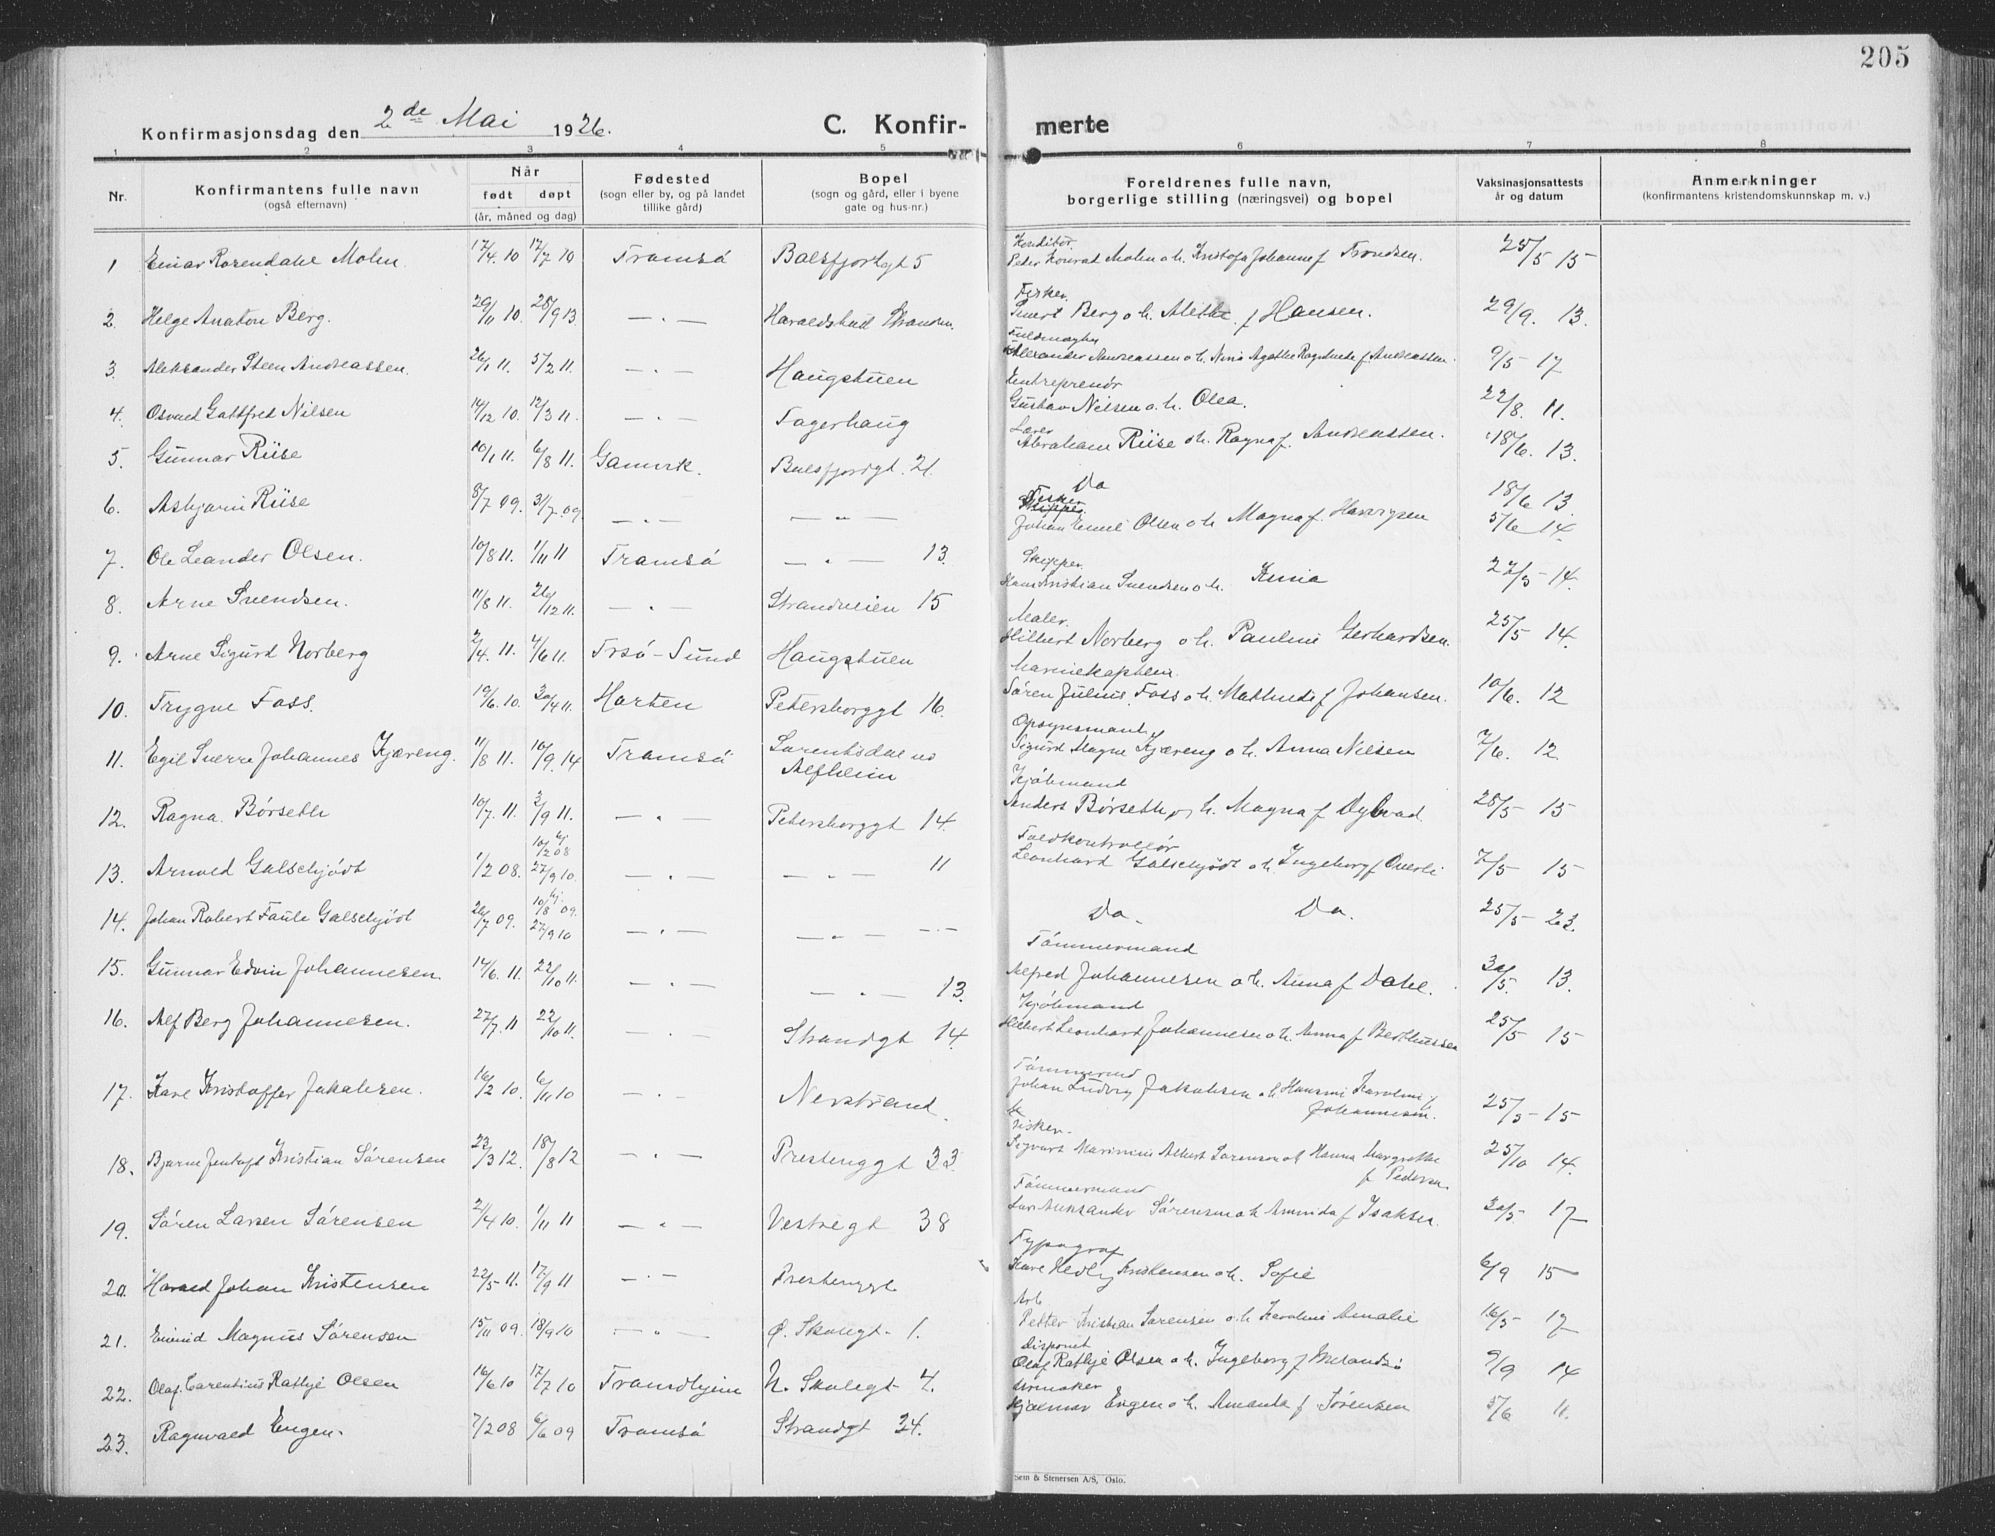 205
Konfirmasjonsdag den 2de Mai 1926.
C. Konfir-
merte
1 2 3 4 5 6 7 8
Nr.
Konfirmantens fulle navn
(også efternavn)
Når
født døpt
(år, måned og dag)
Fødested
(sogn eller by, og på landet
tillike gård)
Bopel
(sogn og gård, eller i byene
gate og hus-nr.)
Foreldrenes fulle navn,
borgerlige stilling (næringsvei) og bopel
Vaksinasjonsattests
år og datum
Anmerkninger
(konfirmantens kristendomskunnskap m. v.)
1 Einar Rosendahl Mohn. 17/4 10 17/7 10 Tromsø Balsfjordgt 5
Konditor.
Peder Konrad Mohn o.h. Johanne f Trondsen. 25/5 15
2. Helge Anaton Berg. 29/11 10. 28/9 13. — " — Haraldshul Stranden.
Fisker.
Berg o h. Alethe f Hansen. 29/9. 13.
3. Aleksander Steen Andreassen. 26/1 11. 5/2 11. — " — Haugstuen
Alexander Andreassen o h. Nina Agathe Ragnhilde f. Andreassen. 9/5 17
4. Osvald Gottfred Nilsen 14/12 10. 12/3 11. — " — Fagerhaug
Entreprenør
Gustav Nilsen o.h. Olea. 22/8. 11.
5. Gunnar Riise 10/1 11. 6/8 11. Gamvik. Balsfjordgt. 21.
Lærer
Abraham Riise o h. Ragna f. Andreassen. 18/6. 13.
6. Asbjørn Riise 8/7 09. 31/7 09. — " — — " —
Do 18/6 13.
7. Ole Leander Olsen. 10/8 11. 1/11 11 Tromsø — " — 13.
Fisker
Johan Emil Olsen o h Magna f. 5/6 14.
8. Arne Svendsen. 11/8 11. 26/12 11. — " — Strandveien 15
Skipper.
Hans Kristian Svendsen o h. 22/5 — 14.
9. Arne Sigurd Norberg 2/4 11. 4/6 11. Trsø-Sund Haugstuen
Maler.
Hilbert Norberg o h. Pauline Gerhardsen. 25/5 14.
10. Trygve Foss. 19/6. 10. 30/4 11. Horten Petersborggt 16.
Marinekaptein.
Søren Julius Foss o h. Mathilde f Johansen. 10/6. 12
11. Egil Sverre Johannes Kjæreng. 11/8 11. 10/9. 14 Tromsø Lorentsdal vd
Alfheim
Opsynsmand
Sigurd Magne Kjæreng o h. Anna Nilsen 7/6. 12
12. Ragna Børseth 10/7 11. 3/9 11. — " — Petersborggt 14.
Kjøbmand
Anders Børseth o h. Magna f Dybvad. 25/5 15
13. Arnold Galschjødt 1/2 08. 10/2 08 hj 27/9 10. — " — — " — 11
Toldkontrollør
Leonhard Galschjødt o.h. Ingeborg f Overli 7/5 15
14. Johan Robert Faule Galschjødt 26/7 09. hj 10/8 09. 27/9 10 — " — — " — — " —
Do. Do. 25/5 23.
15. Gunnar Edvin Johannesen. 14/6. 11. 22/10 11. — " — — " — 13.
Tömmermand
Alfred Johannesen o h. Anna f Dahl. 30/5. 13.
16. Alf Berg Johannesen. 27/7 11 22/10 11. — " — Strandgt 14.
Kjøbmand
Hilbert Leonhard Johannesen o h. Anna f Berthussen 25/5 15
17. Kåre Kristoffer Jakobsen. 16/2 10. 6/11 10 — " — Nerstrand.
Tömmermd
Johan Ludvig Jakobsen o h Hansine Karoline f
Johannesen. 25/5 — 15
18. Bjarne Jentoft Kristian Sørensen 23/3 12. 18/8 12 — " — Prestenggt 33.
Fisker.
Sigvart Marinius Albert Sørensen o h Hanna Margrethe
f Pedersen. 25/10 14.
19. Søren Larsen Sørensen 2/4 10. 1/11 11 — " — Vestregt 38
Tömmermand
Lars Aleksander Sørensen o h Amanda f Isaksen. 30/5. 17
20. Harald Johan Kristensen 22/5 11. 17/9 11 — " — Prestenggt
Typograf
Kåre Hedly Kristensen o h. Sofie 6/9 15
21. Eivind Magnus Sørensen 15/11 09. 18/9 10 — " — Ø. Skolegt. 1.
Arb
Petter Kristian Sørensen o.h Karoline Amalie 16/5 17
22. Olaf. Carentius Rathje Olsen 16/6 10 17/7 10 Trondhjem N. Skolegt 4.
Disponent
Olaf Rathje Olsen o h. Ingeborg f 9/9 14
23. Ragnvald Engen. 7/2 08 6/6 09 Tromsø Strandgt 34.
Urmaker
Hjalmar Engen o h. Amanda f Sørensen 5/6 11.
Sem & Stenersen A/S, Oslo.